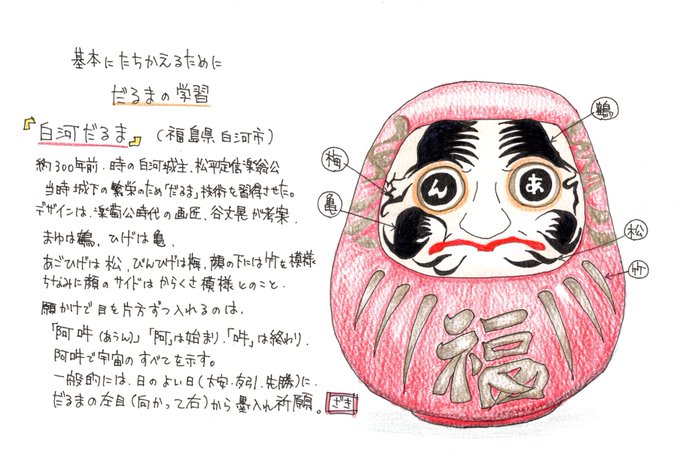 基本にたちかえるために
だるまの学習
『白河だるま』(福島県白河市)
約300年前、時の白河城主、松平定信楽翁公
当時城下の繁栄のため「だるま」技術を習得させた。
デザインは、楽翁公時代の画匠、谷文晁が考案、
まゆは鶴、ひげは亀、
あごひげは松、びんひげは梅、顔の下には竹を模様
ちなみに顔のサイドはからくさ模様とのこと。
願かけで目を片方ずつ入れるのは、
「阿吽(あうん)」「阿」は始まり、「吽」は終わり、
阿吽で宇宙のすべてを示す。
一般的には、日のよい日(大安・友引・先勝)に、
だるまの左目(向かって右)から墨入れ祈願。
ざき
鶴
梅
亀
松
竹
ん
あ
福